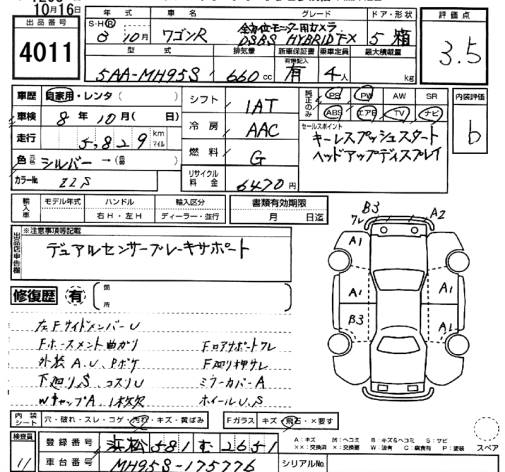 10月16日
出品番号
4011
年式 車名 グレード ドア・形状
S・H・R
3 10月 ワゴンR 全方位モニター用カメラ
DSBS HYBRID FX 5 箱
型式 排気量 新車保証書 乗車定員 最大積載量
5AA-MH95S 660cc 有 4人 kg
評価点
3.5
車歴 自家用・レンタ( )
車検 8年10月( 日)
走行 5,829 km マイル
色 元色 シルバー →( 色)
カラーNo. ZZS
シフト 1AT
冷房 AAC
燃料 G
リサイクル料金 6470円
純正のみ
PS PW AW SR
ABS エアB TV ナビ
内装評価
b
セールスポイント
キーレスプッシュスタート
ヘッドアップディスプレイ
輸入車 モデル年式 ハンドル 輸入区分
年 右H・左H ディーラー・並行
書類有効期限
月 日迄
出品店申告欄
※注意事項等記載
デュアルセンサーブレーキサポート
修復歴 有 箇所
左FサイドメンバーU
Fホースメント曲ガリ Fロアサポートフレ
外装A.U.Pボケ F廻リ押サレ
下廻リS.コスリU ミラーカバーA
WキャップA1枚欠 ホイールU.S
B3 フレ A2
A1 A1
A1 A1
B3 A1
内装シート 穴・破れ・スレ・コゲ・汚れ・キズ・黄ばみ Fガラス キズ・飛石・×要す
検査員
11
登録番号 浜松581む2651
車台番号 MH95S-175776
シリアルNo.
A：キズ U：凹ミ B：キズ&ヘコミ S：サビ
スペア